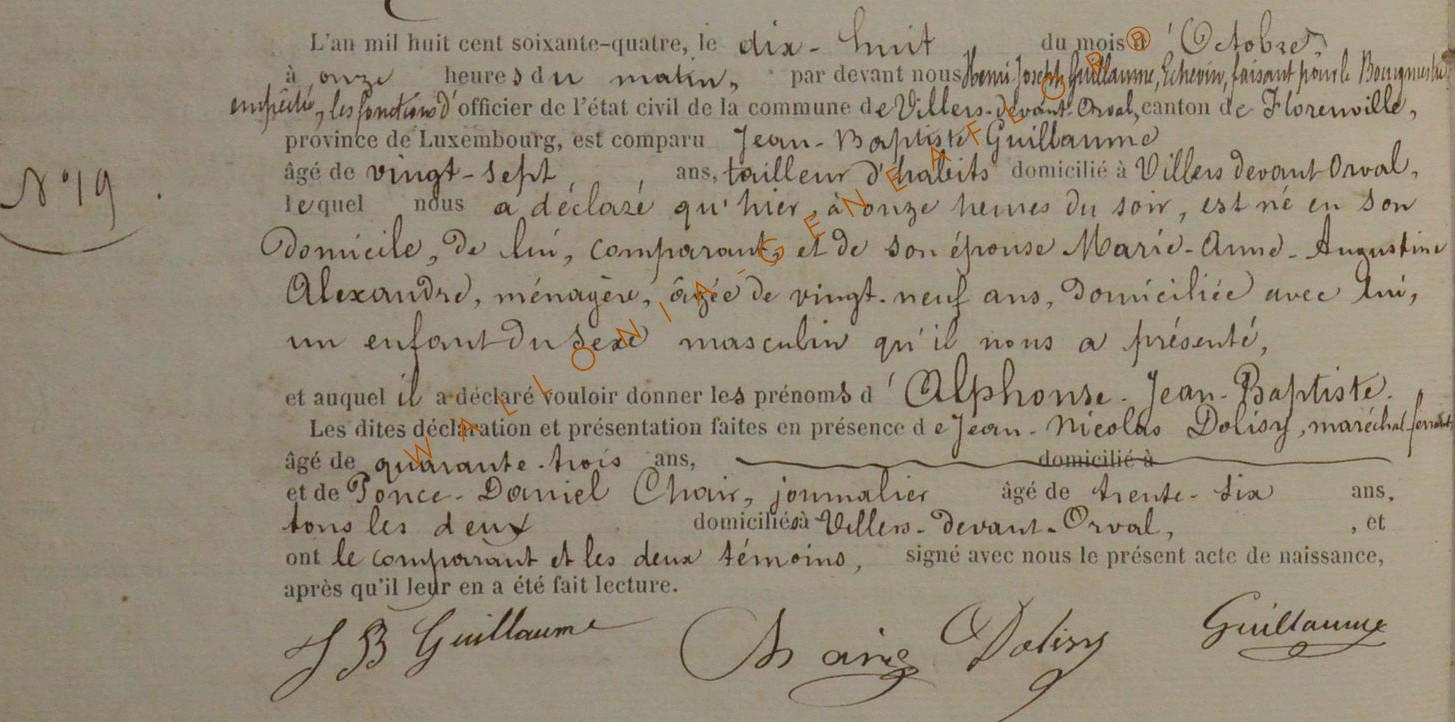 L'an mil huit cent soixante-quatre, le dix-huit du mois d'Octobre,
à onze heures du matin, par devant nous Henri-Joseph Guillaume, Echevin, faisant pour le Bourgmestre
empêché, les fonctions d'officier de l'état civil de la commune de Villers-devant-Orval, canton de Florenville,
province de Luxembourg, est comparu Jean-Baptiste Guillaume
N° 19
âgé de vingt-sept ans, tailleur d'habits domicilié à Villers devant Orval,
lequel nous a déclaré qu'hier, à onze heures du soir, est né en son
domicile, de lui, comparant, et de son épouse Marie-Anne-Augustine
Alexandre, ménagère, âgée de vingt-neuf ans, domiciliée avec lui,
un enfant du sexe masculin qu'il nous a présenté,
et auquel il a déclaré vouloir donner les prénoms d'Alphonse-Jean-Baptiste.
Les dites déclaration et présentation faites en présence de Jean-Nicolas Dolisy, maréchal-ferrant,
âgé de quarante-trois ans, domicilié à
et de Ponce-Daniel Chair, journalier âgé de trente-six ans,
tous les deux domiciliés à Villers-devant-Orval, , et
ont le comparant et les deux témoins, signé avec nous le présent acte de naissance,
après qu'il leur en a été fait lecture.
J B Guillaume Dolisy Guillaume
WALLONIA-GENEAFLOR®